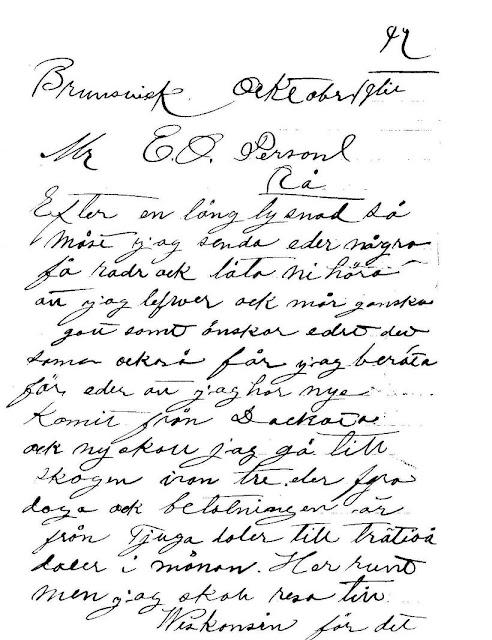 92
Brunswick. Ocktober 9tie
Mr E. O. Person
Rå
Efter en lång tysnad så
måst jag senda eder några
få radr ock låta ni höra
att jag lefwer ock mår ganska
gott samt önskar edr det
sama också får jag beräta
för eder att jag har nys
Komit från Dackota
ock ny skall jag gå till
skogen inon tre eler fyra
daga ock betalningen är
från Tjuga daler till trätio
daler i månan. Her runt
men jag skall resa till
Wiskonsin för det